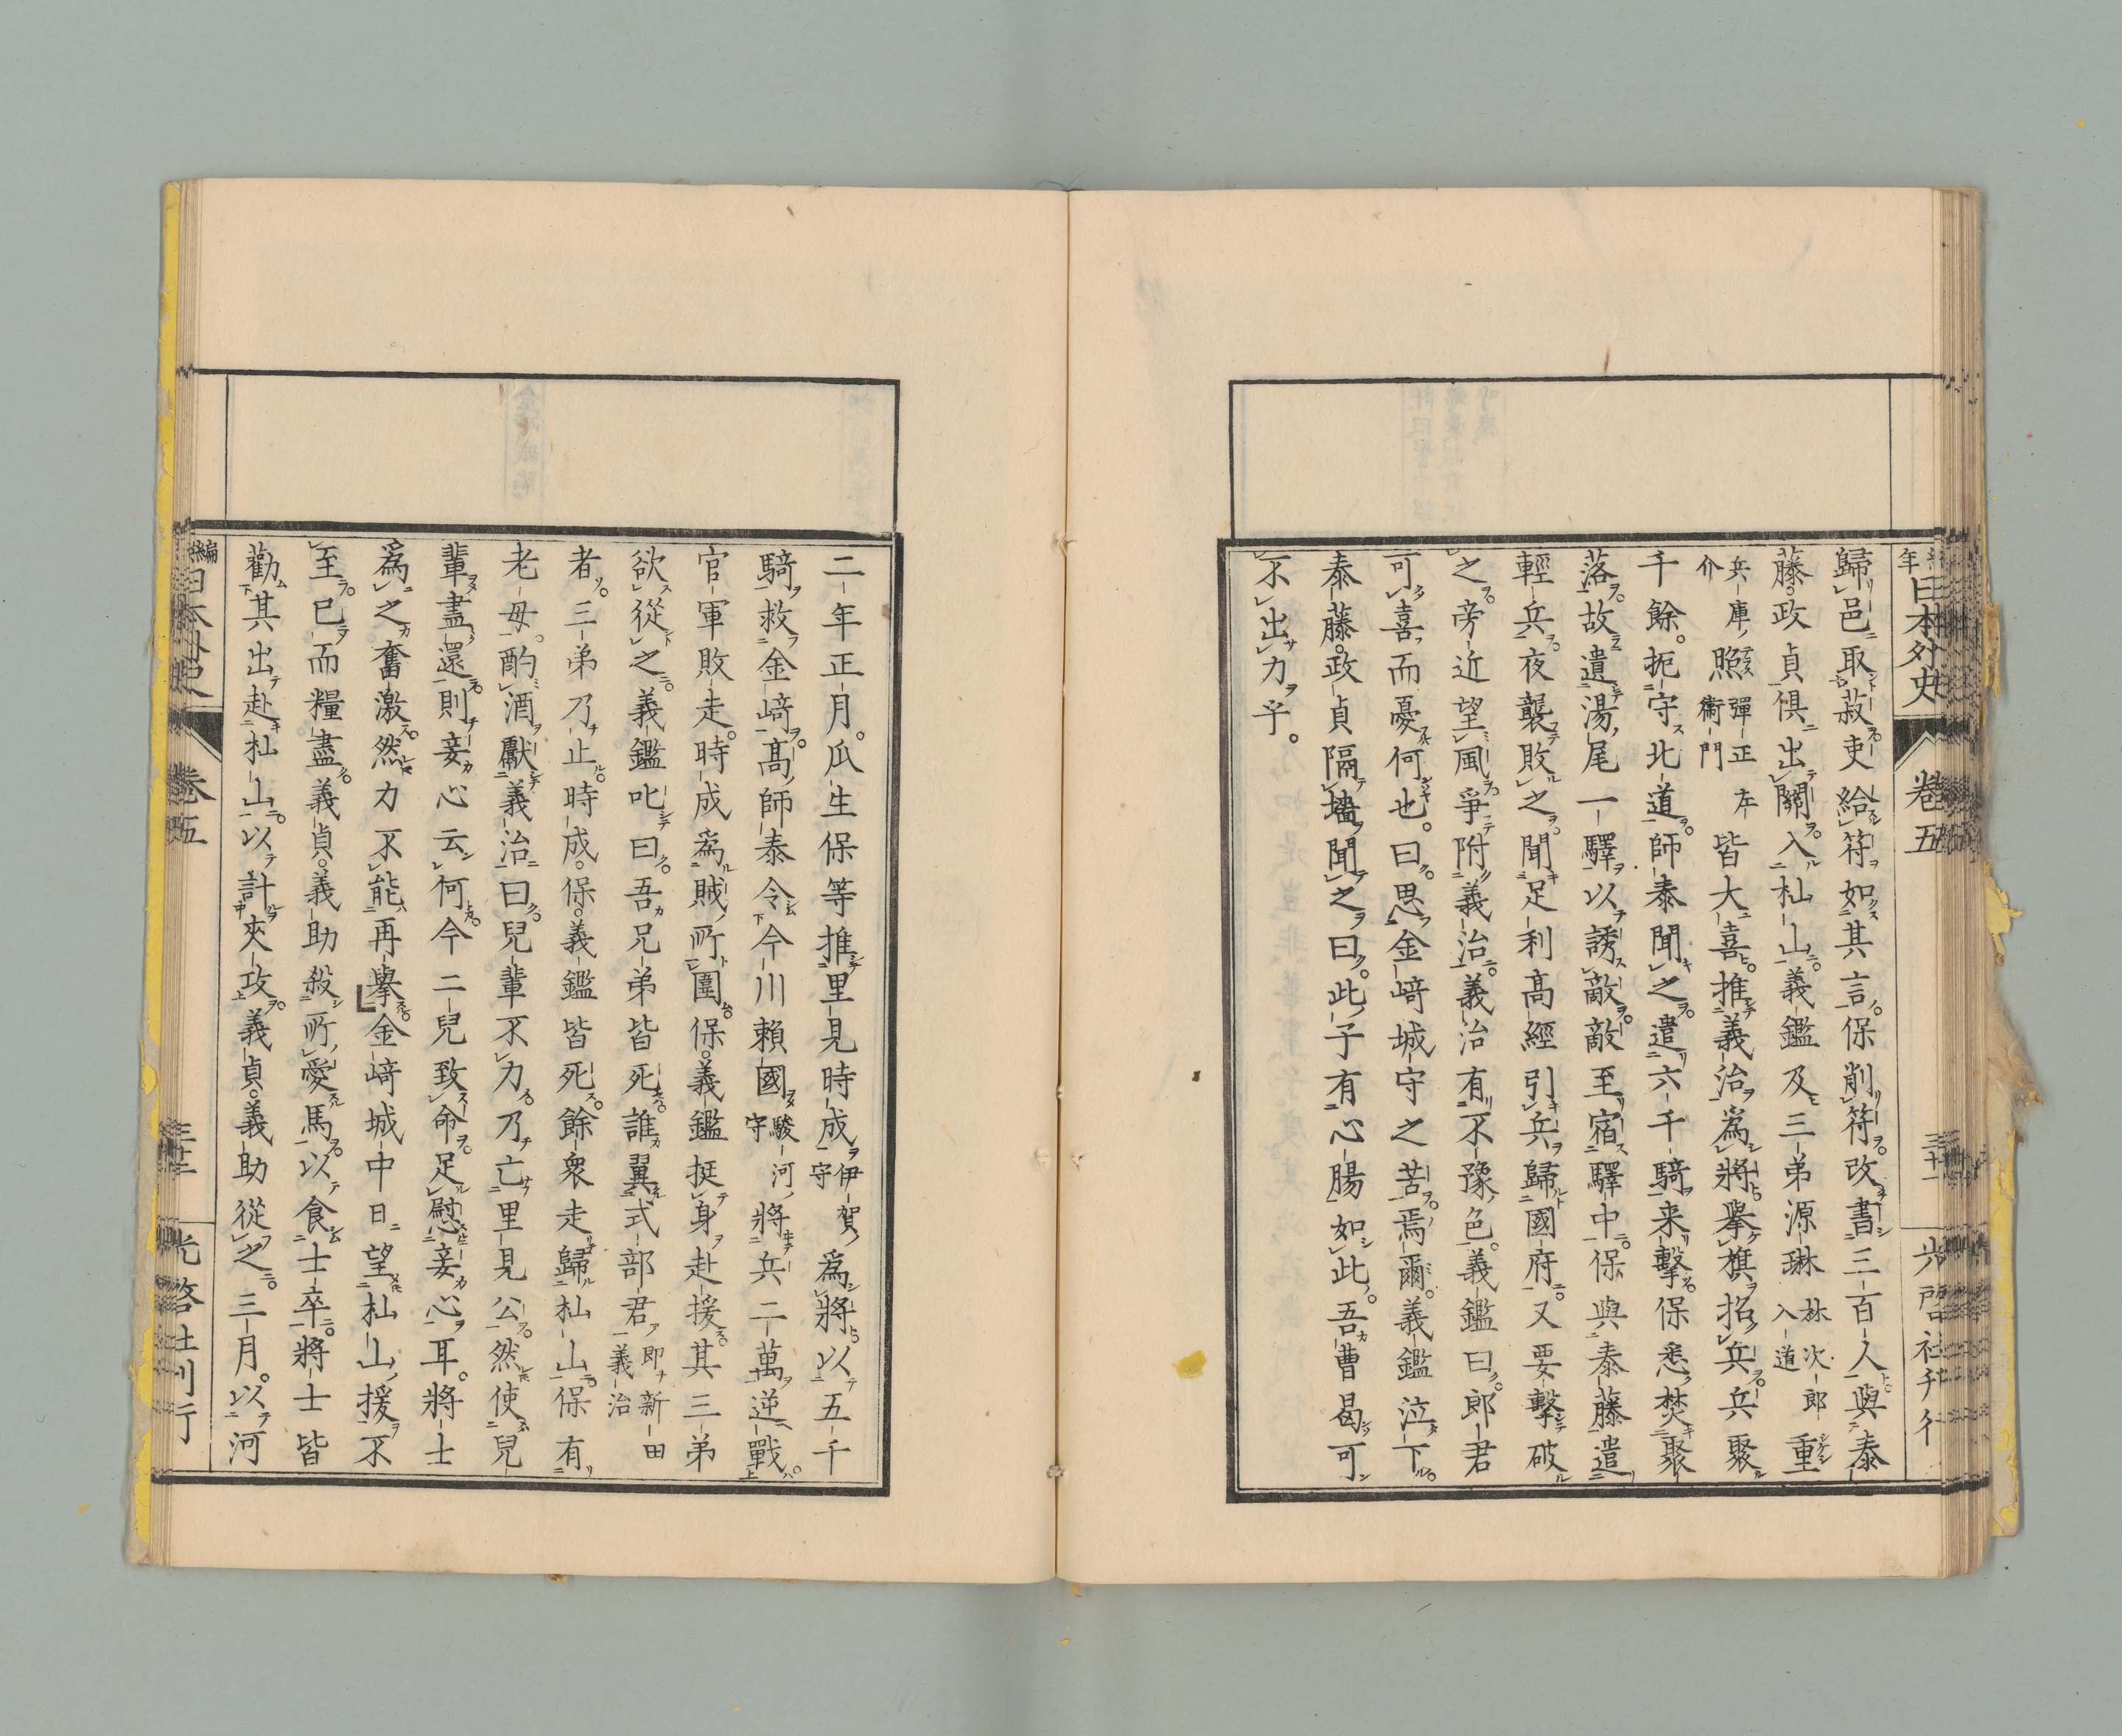 編年日本外史 卷五 三十一 光啓社刊行
歸邑取菽吏給符如其言。保削符。改書三百人與泰
藤。政貞倶出關。入杣山。義鑑及三弟源琳林次郎入道重
兵庫介照彈正左衞門皆大喜。推義治爲將擧旗招兵。兵聚
千餘。扼守北道。師泰聞之。遣六千騎来擊。保悉焚聚
落。故遺湯尾一驛以誘敵。敵至宿驛中。保與泰藤遣
輕兵。夜襲敗之。聞足利高經引兵歸國府。又要擊破
之。旁近望風爭附義治。義治有不豫色。義鑑曰。郎君
可喜而憂何也。曰。思金﨑城守之苦焉爾。義鑑泣下。
泰藤。政貞隔墻聞之曰。此子有心腸如此。吾曹曷可
不出力乎。
二年正月。瓜生保等推里見時成伊賀守爲將以五千
騎救金﨑。高師泰令今川賴國駿河守將兵二萬逆戰。
官軍敗走。時成爲賊所圍。保。義鑑挺身赴援。其三弟
欲從之。義鑑叱曰。吾兄弟皆死。誰翼式部君即新田義治
者。三弟乃止。時成。保。義鑑皆死。餘衆走歸杣山。保有
老母。酌酒獻義治曰。兒輩不力。乃亡里見公。然使兒
輩盡還。則妾心云何。今二兒致命。足慰妾心耳。將士
爲之奮激。然力不能再擧。金﨑城中日望杣山援不
至。已而糧盡。義貞。義助殺所愛馬。以食士卒。將士皆
勸其出赴杣山。以計夾攻。義貞。義助從之。三月。以河
編年日本外史 卷五 三十二 光啓社刊行